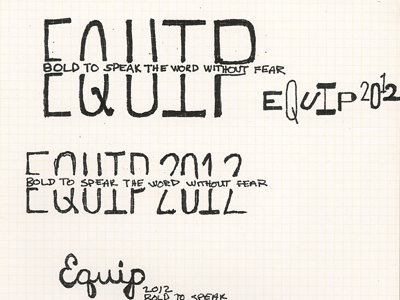 EQUIP
BOLD TO SPEAK THE WORD WITHOUT FEAR
EQUIP 2012
EQUIP 2012
BOLD TO SPEAK THE WORD WITHOUT FEAR
Equip
2012
BOLD TO SPEAK